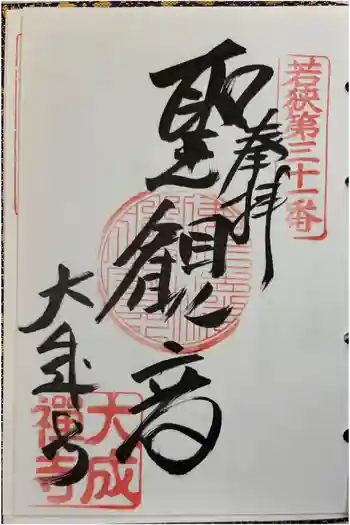 若狭第三十一番
奉拝
聖観音
大成寺
大成禅寺